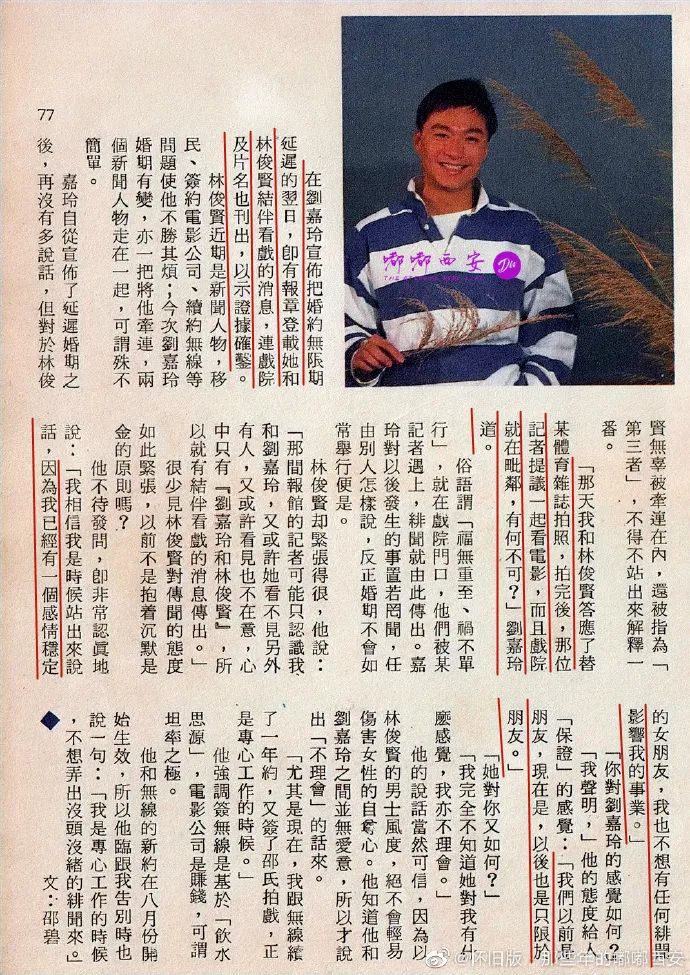 77
嘟嘟西安
Du
在劉嘉玲宣佈把婚約無限期
延遲的翌日，即有報章登載她和
林俊賢結伴看戲的消息，連戲院
及片名也刊出，以示證據確鑿。
林俊賢近期是新聞人物，移
民、簽約電影公司、續約無線等
問題使他不勝其煩；今次劉嘉玲
婚期有變，亦一把將他牽連，兩
個新聞人物走在一起，可謂殊不
簡單。
嘉玲自從宣佈了延遲婚期之
後，再沒有多說話，但對於林俊
賢無辜被牽連在內，還被指為「
第三者」，不得不站出來解釋一
番。
「那天我和林俊賢答應了替
某體育雜誌拍照，拍完後，那位
記者提議一起看電影，而且戲院
就在毗鄰，有何不可？」劉嘉玲
道。
俗語謂「福無重至、禍不單
行」，就在戲院門口，他們被某
記者遇上，緋聞就由此傳出。嘉
玲對以後發生的事置若罔聞，任
由別人怎樣說，反正婚期不會如
常舉行便是。
林俊賢却緊張得很，他說：
「那間報館的記者可能只認識我
和劉嘉玲，又或許她看不見另外
有人，又或許看見也不在意，心
中只有『劉嘉玲和林俊賢』，所
以就有結伴看戲的消息傳出。」
很少見林俊賢對傳聞的態度
如此緊張，以前不是抱着沉默是
金的原則嗎？
他不待發問，即非常認眞地
說：「我相信我是時候站出來說
話，因為我已經有一個感情穩定
的女朋友，我也不想有任何緋聞
影響我的事業。」
「你對劉嘉玲的感覺如何？」
「我聲明，」他的態度給人
「保證」的感覺：「我們以前是
朋友，現在是，以後也是只限於
朋友。」
「她對你又如何？」
「我完全不知道她對我有什
麼感覺，我亦不理會。」
他的說話當然可信，因為以
林俊賢的男士風度，絕不會輕易
傷害女性的自尊心。他知道他和
劉嘉玲之間並無愛意，所以才說
出「不理會」的話來。
「尤其是現在，我跟無線續
了一年約，又簽了邵氏拍戲，正
是專心工作的時候。」
他強調簽無線是基於「飲水
思源」，電影公司是賺錢，可謂
坦率之極。
他和無線的新約在八月份開
始生效，所以他臨跟我告別時也
說一句：「我是專心工作的時候
，不想弄出沒頭沒緒的緋聞來。」
◆
文：邵碧
@怀旧版·那些年的嘟嘟西安